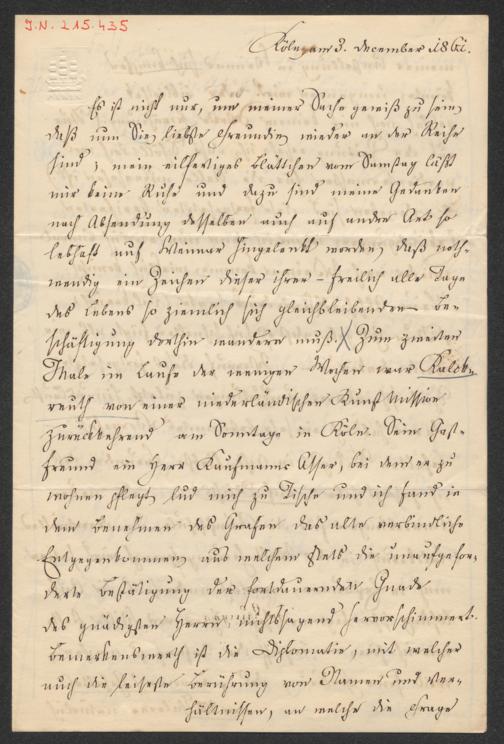 J.N. 215.435
Köln, am 3. December 1861.
Es ist nicht nur, um meiner Sache gewiß zu sein,
daß nun Sie, liebste Freundin, wieder an der Reihe
sind; mein eilfertiges Blättchen vom Samstag läßt
mir keine Ruhe und dazu sind meine Gedanken
nach Absendung desselben auch auf andre Art so
lebhaft auf Weimar hingelenkt worden, daß noth-
wendig ein Zeichen dieser ihrer – freilich alle Tage
des Lebens so ziemlich sich gleichbleibenden – Be-
schäftigung dorthin wandern muß. Zum zweiten
Male im Laufe der wenigen Wochen war Kalck-
reuth von einer niederländischen Kunst Mission
zurückkehrend am Sonntage in Köln. Sein Gast-
freund ein Herr Kaufmann Asser, bei dem er zu
wohnen pflegt, lud mich zu Tische und ich fand in
dem Benehmen des Grafen das alte verbindliche
Entgegenkommen, aus welchem stets die unaufgefor-
derte Bestätigung der fortdauernden Gnade
des gnädigsten Herrn, nichtssagend hervorschimmert.
Bemerkenswerth ist die Diplomatie, mit welcher
auch die leiseste Berührung von Namen und Ver-
hältnissen, an welche die Frage